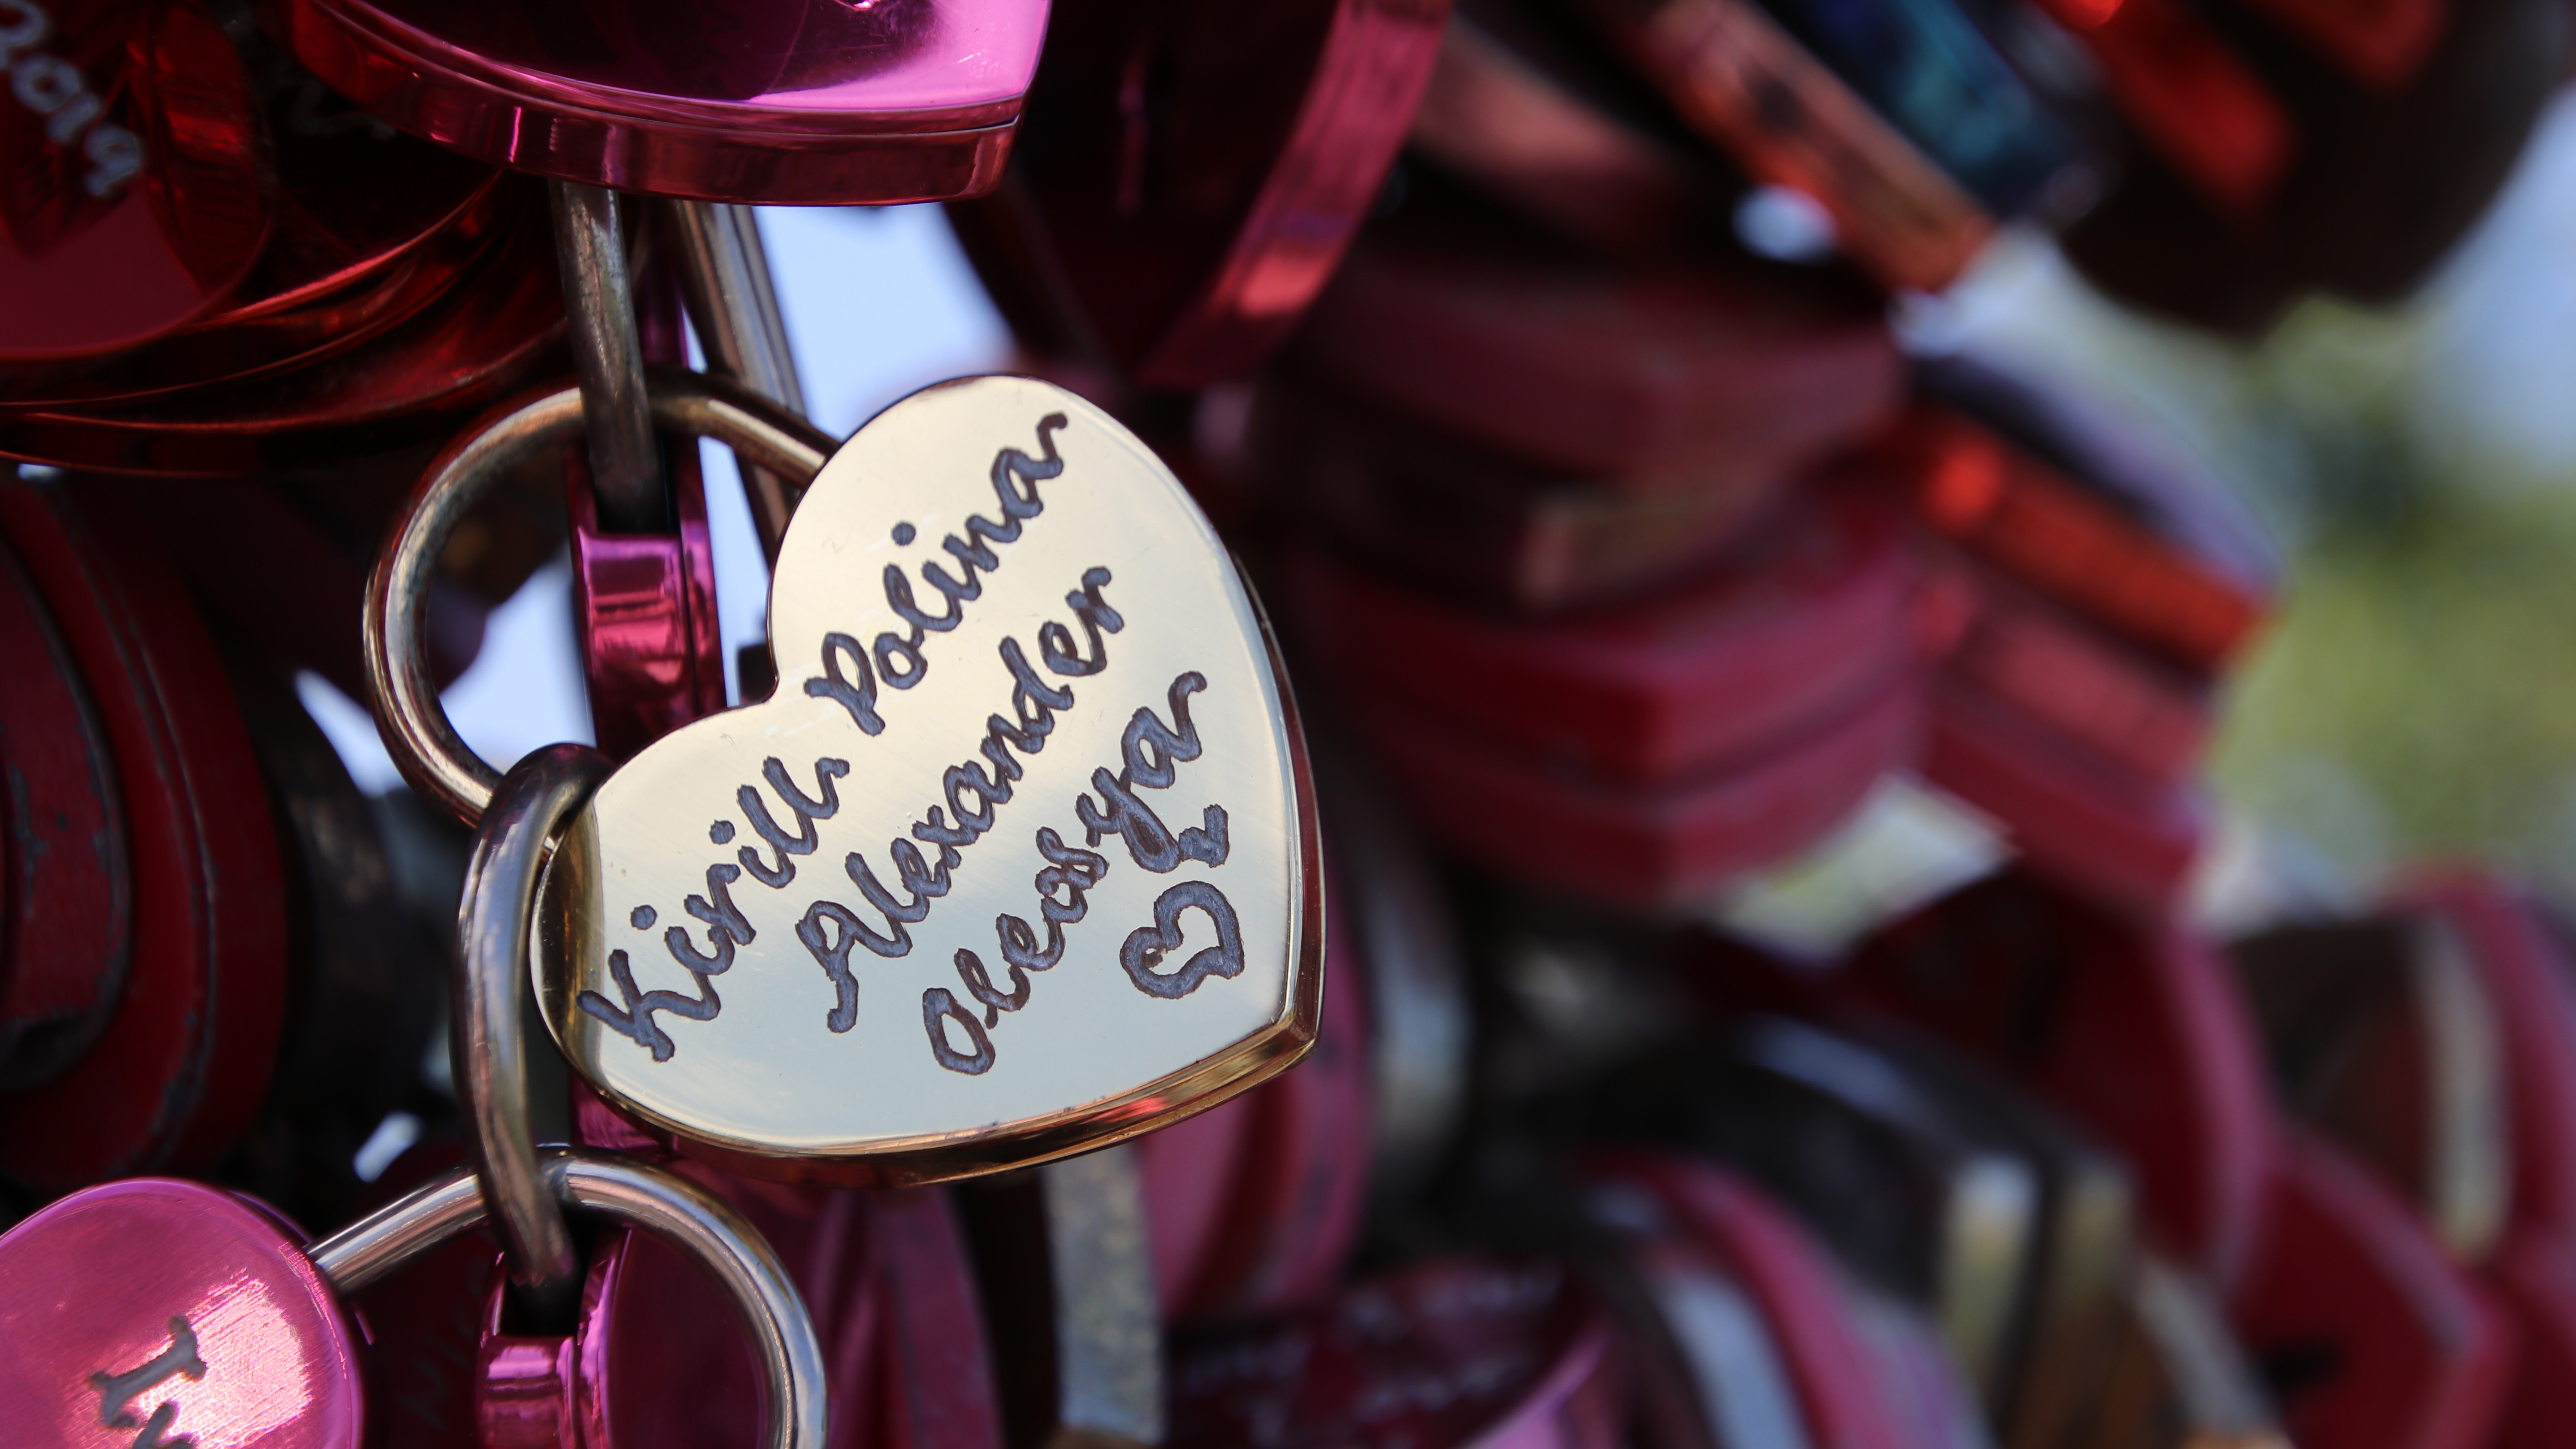 Kirill Polina
Alexander
Oleosya